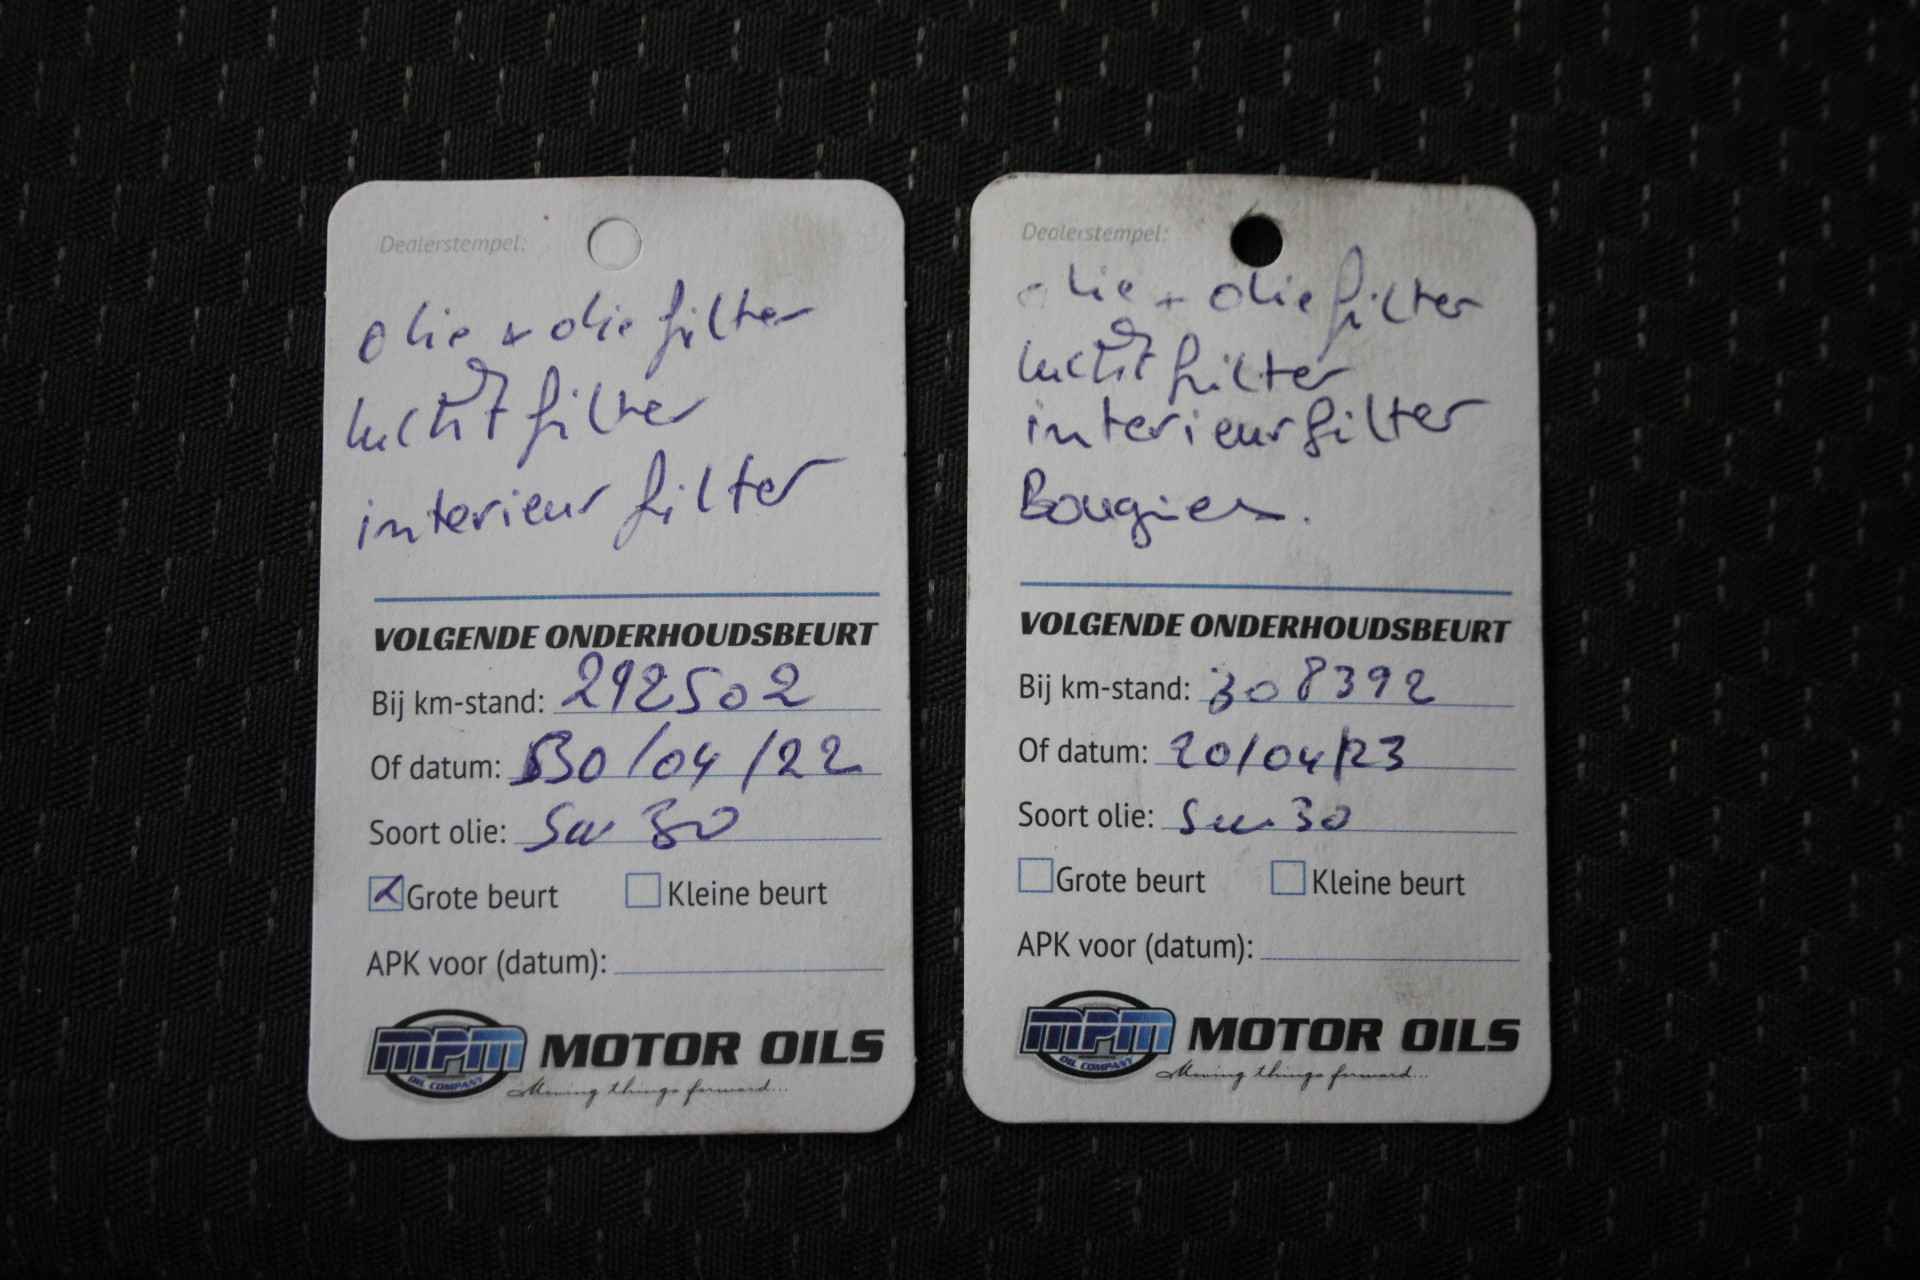 Dealerstempel:
olie + olie filter
lucht filter
interieur filter
VOLGENDE ONDERHOUDSBEURT
Bij km-stand: 292502
Of datum: 30/04/22
Soort olie: 5w 30
Grote beurt Kleine beurt
APK voor (datum):
MPM MOTOR OILS
OIL COMPANY
Moving things forward...
Dealerstempel:
olie + olie filter
lucht filter
interieurfilter
Bougies.
VOLGENDE ONDERHOUDSBEURT
Bij km-stand: 308392
Of datum: 20/04/23
Soort olie: 5w 30
Grote beurt Kleine beurt
APK voor (datum):
MPM MOTOR OILS
OIL COMPANY
Moving things forward...